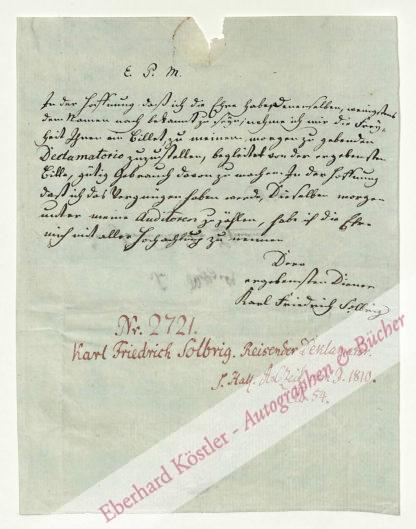 E. P. M.
In der Hoffnung daß ich die Ehre habe, denenselben, wenigstens
dem Namen nach bekannt zu seyn, nehme ich mir die Frey-
heit Ihnen ein Billet zu meinem morgen zu gebenden
Declamatorio zuzustellen, begleitet von der ergebensten
Bitte, gütig Gebrauch davon zu machen. In der Hoffnung
daß ich das Vergnügen haben werde, Dieselben morgen
unter meine Auditores zu zählen, habe ich die Ehre
mich mit aller Hochachtung zu nennen
Dero
ergebenster Diener
Karl Friedrich Solbrig
Nr. 2721.
Karl Friedrich Solbrig. Reisender Deklamator.
S. Hall. 1810.
54.
Eberhard Köstler - Autographen & Bücher